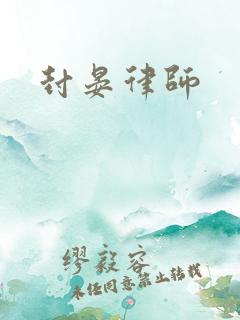 封晏律师
缪毅容
未经同意禁止转载